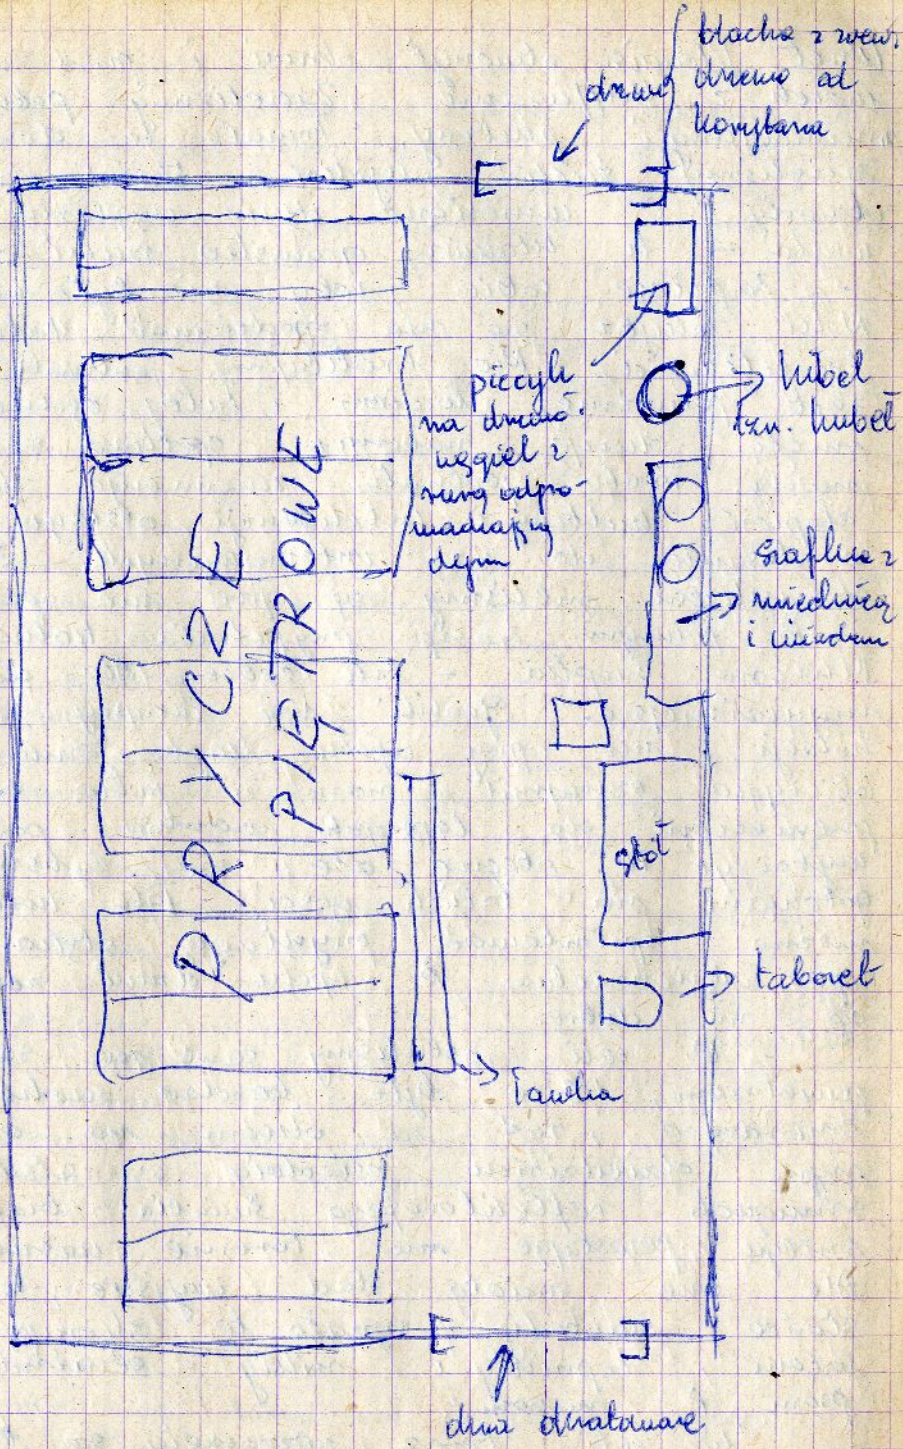 blacha z zewn.
drzwi
drzewo od
korytarza
piecyk
na drzewo.
węgiel z
rurą odpro-
wadzającą
dym
kibel
tzn. kubeł
szafka z
miednicą
i wiadrem
PRYCZE
PIĘTROWE
stół
taboret
ławka
okna okratowane